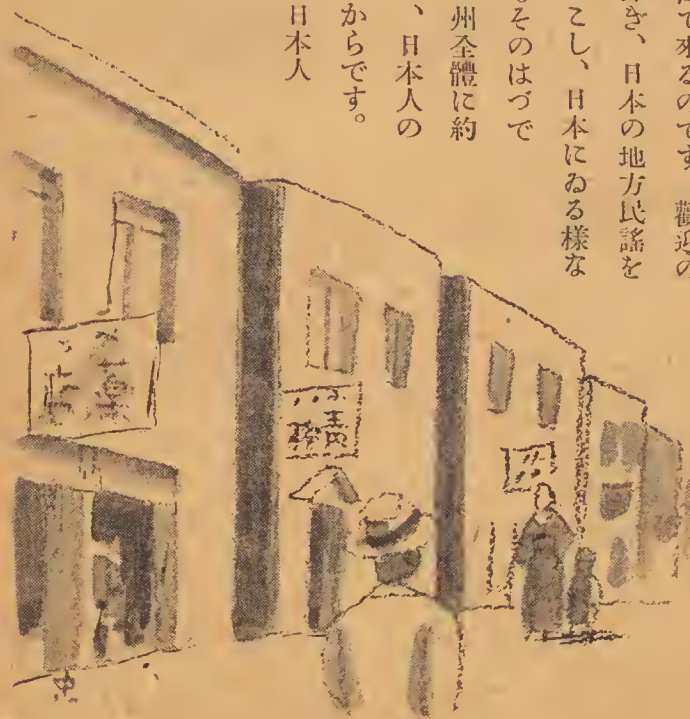 て來るのです 歡迎の
ぎ、日本の地方民謠を
こし、日本にゐる様な
そのはづで
州全體に約
、日本人の
からです。
日本人